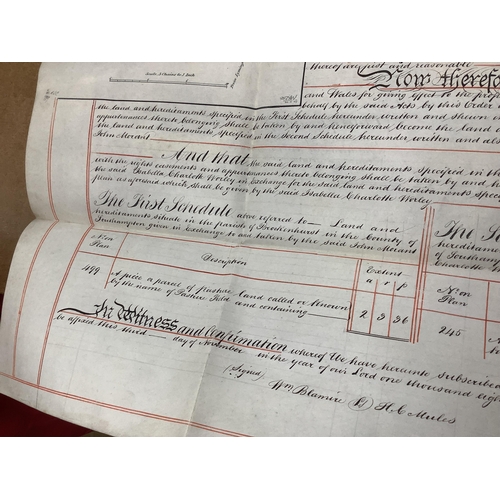 Scale, 3 Chains to 1 Inch
thereof are just and reasonable
Now therefo
and Wales for giving effect to the prop
behalf by the said Acts by this Order
the land and hereditaments specified in the First Schedule hereunder written and shewn
appurtenances thereto belonging shall be taken by and henceforward become the land
the land and hereditaments specified in the Second Schedule hereunder written and als
John Morant
And that the said land and hereditaments specified in the
with the rights easements and appurtenances thereto belonging shall be taken by and
the said Isabella Charlotte Worley in Exchange for the said land and hereditaments spec
plan as aforesaid which shall be given by the said Isabella Charlotte Worley
The First Schedule above referred to Land and
hereditaments situate in the parish of Brockenhurst in the County of
Southampton given in Exchange to and taken by the said John Morant
The S
hereditame
of Southam
Charlotte
No on Plan
Description
Extent
a r p
No on
Plan
499
A piece a parcel of pasture land called or known
by the name of Pasture Field and containing
2 3 36
245
A
In Witness and Confirmation whereof We have hereunto subscribed
be affixed this third day of November in the year of our Lord one thousand eigh
(Signed)
Wm Blamire
H. C. Mules